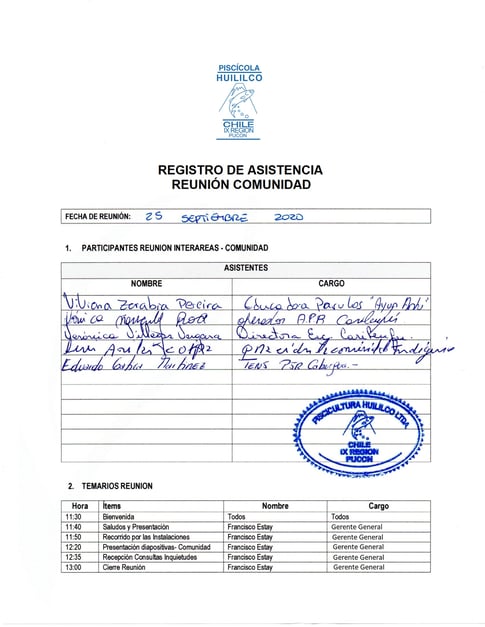 PISCÍCOLA
HUILILCO
CHILE
IX REGION
PUCON
REGISTRO DE ASISTENCIA
REUNIÓN COMUNIDAD
FECHA DE REUNIÓN: 25 SEPTIEMBRE 2020
1. PARTICIPANTES REUNION INTERAREAS - COMUNIDAD
ASISTENTES
NOMBRE CARGO
Viviana Zarabia Pereira Educadora Parvulos
operador A.P.R
Verónica Villegas Vergara Directora Esc.
Eduardo TENS PSR
PISCICULTURA HUILILCO LTDA
CHILE
IX REGION
PUCON
2. TEMARIOS REUNION
Hora Ítems Nombre Cargo
11:30 Bienvenida Todos Todos
11:40 Saludos y Presentación Francisco Estay Gerente General
11:50 Recorrido por las Instalaciones Francisco Estay Gerente General
12:20 Presentación diapositivas- Comunidad Francisco Estay Gerente General
12:35 Recepción Consultas Inquietudes Francisco Estay Gerente General
13:00 Cierre Reunión Francisco Estay Gerente General